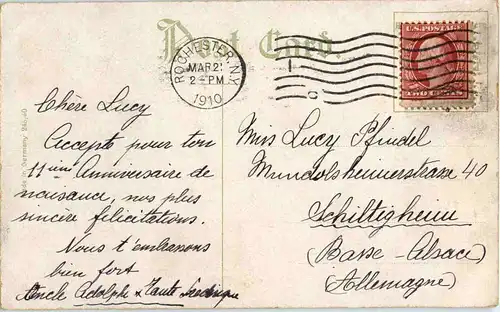 Post Card.
U.S. POSTAGE
TWO CENTS
ROCHESTER, N.Y.
MAR 21
2-PM
1910
Made in Germany
Chère Lucy
Accepte pour ton
11ième Anniversaire de
naisance, nos plus
sincère felicitations.
Nous t'embrassons
bien fort
Oncle Adolphe & Tante
Miss Lucy Pfindel
Mundolsheimerstrasse 40
Schiltigheim
(Basse-Alsace)
(Allemagne)